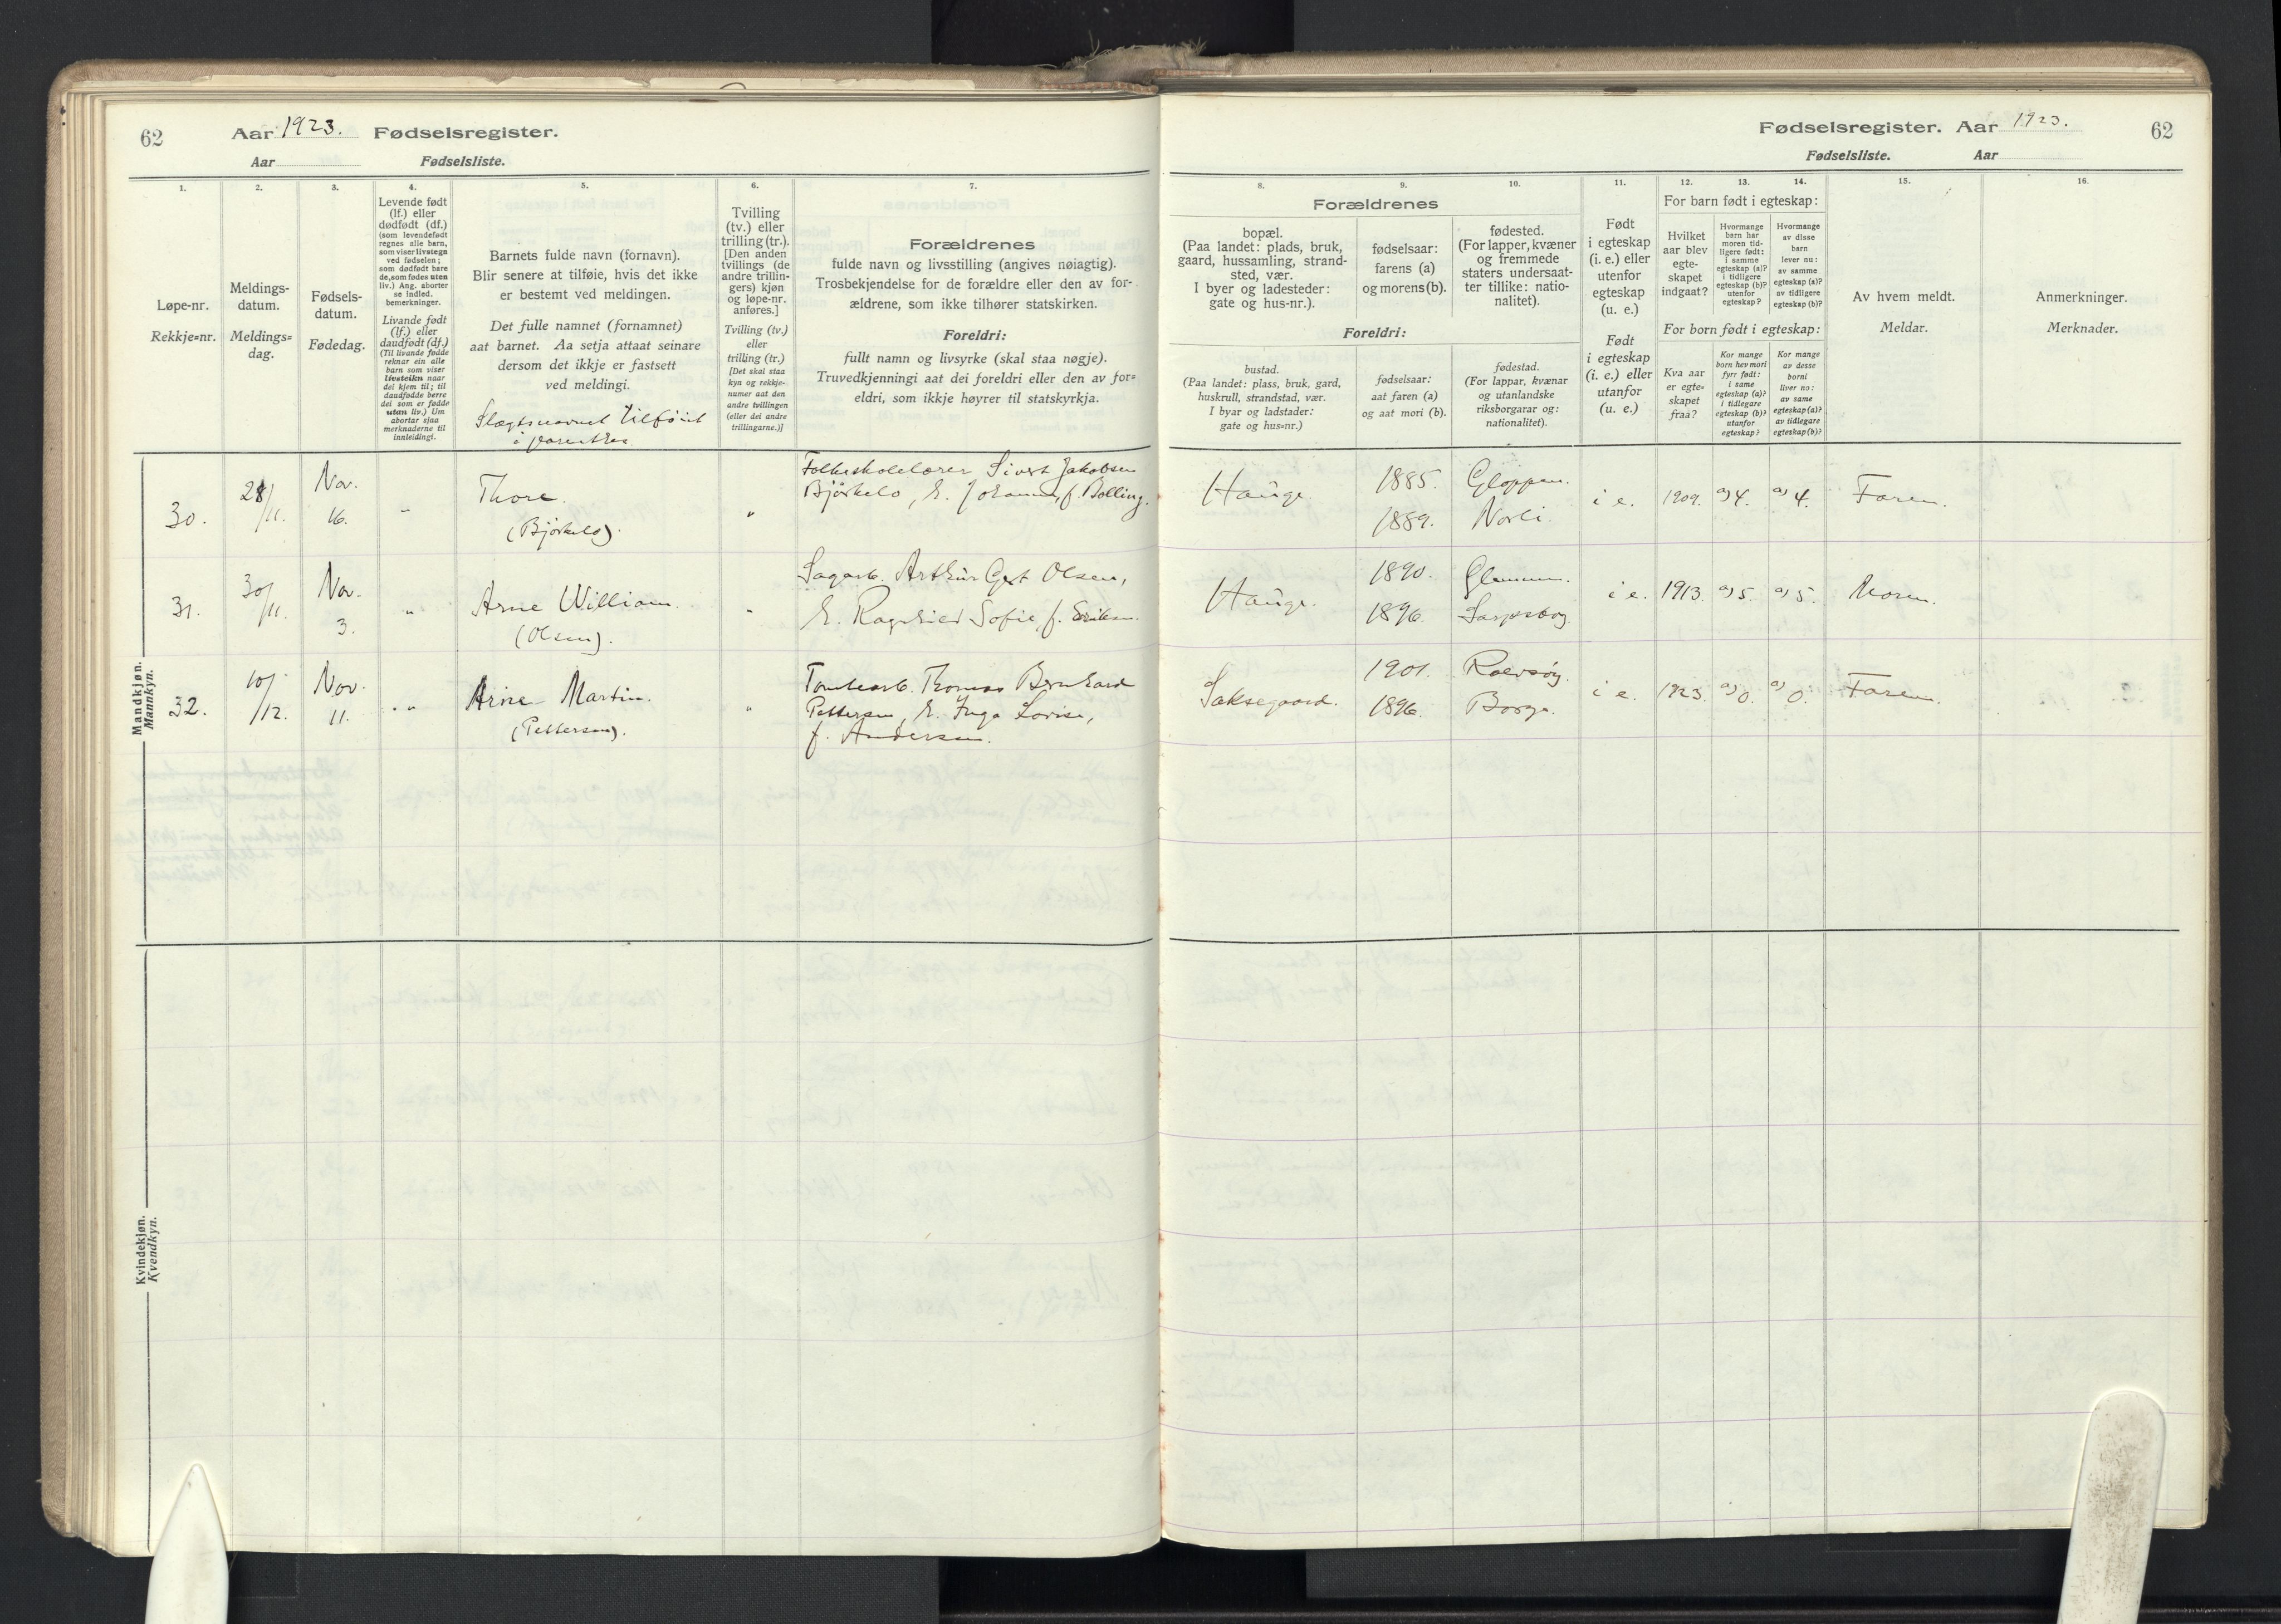 62 Aar 1923. Fødselsregister.
Aar Fødselsliste.
1.
Løpe-nr.
Rekkje=nr.
2.
Meldings-
datum.
Meldings=
dag.
3.
Fødsels-
datum.
Fødedag.
4.
Levende født
(lf.) eller
dødfødt (df.)
(som levendefødt
regnes alle barn,
som viser livstegn
ved fødselen;
som dødfødt bare
de, som fødes uten
liv.) Ang. aborter
se indled.
bemerkninger.
Livande født
(lf.) eller
daudfødt (df.)
(Til livande fødde
reknar ein alle
barn som viser
livsteikn naar
dei kjem til; til
daudfødde berre
dei som er fødde
utan liv.) Um
abortar sjaa
merknaderne til
innleidingi.
5.
Barnets fulde navn (fornavn).
Blir senere at tilføie, hvis det ikke
er bestemt ved meldingen.
Det fulle namnet (fornamnet)
aat barnet. Aa setja attaat seinare
dersom det ikkje er fastsett
ved meldingi.
Slægtsnavnet tilføiet
i parentes
6.
Tvilling
(tv.) eller
trilling (tr.).
[Den anden
tvillings (de
andre trillin-
gers) kjøn
og løpe-nr.
anføres.]
Tvilling (tv.)
eller
trilling (tr.)
[Det skal staa
kyn og rekkje-
numer aat den
andre tvillingen
(eller dei andre
trillingarne.)]
7.
Forældrenes
fulde navn og livsstilling (angives nøiagtig).
Trosbekjendelse for de forældre eller den av for-
ældrene, som ikke tilhører statskirken.
Foreldri:
fullt namn og livsyrke (skal staa nøgje).
Truvedkjenningi aat dei foreldri eller den av for=
eldri, som ikkje høyrer til statskyrkja.
Mandkjøn.
Mannkyn.
30. 28/11. Nov. 16. "
Thore.
(Bjørkelo).
"
Folkeskolelærer Sivert Jakobsen
Bjørkelo, H. Johanna, f. Bolling.
31. 30/11. Nov. 3. "
Arne William.
(Olsen).
"
Sagarb. Arthur Gert Olsen,
H. Ragnhild Sofie, f. Eriksen.
32. 10/12. Nov. 11. "
Arne Martin.
(Pettersen).
"
Tomtearb. Thomas Bernhard
Pettersen, H. Inga Lovise,
f. Andersen.
Kvindekjøn.
Kvendkyn.
Fødselsregister. Aar 1923. 62
Fødselsliste. Aar
8.
Forældrenes
bopæl.
(Paa landet: plads, bruk,
gaard, hussamling, strand-
sted, vær.
I byer og ladesteder:
gate og hus-nr.).
Foreldri:
bustad.
(Paa landet: plass, bruk, gard,
huskrull, strandstad, vær.
I byar og ladstader:
gate og hus=nr.)
9.
fødselsaar:
farens (a)
og morens (b).
fødselsaar:
aat faren (a)
og aat mori (b).
10.
fødested.
(For lapper, kvæner
og fremmede
staters undersaat-
ter tillike: natio-
nalitet).
fødestad.
(For lappar, kvænar
og utanlandske
riksborgarar og:
nationalitet).
11.
Født
i egteskap
(i. e.) eller
utenfor
egteskap
(u. e.)
Født
i egteskap
(i. e.) eller
utanfor
(u. e.)
For barn født i egteskap:
12.
Hvilket
aar blev
egte-
skapet
indgaat?
For born født i egteskap:
Kva aar
er egte=
skapet
fraa?
13.
Hvormange
barn har
moren tid-
ligere født:
i samme
egteskap (a)?
i tidligere
egteskap (b)?
utenfor
egteskap?
Kor mange
born hev mori
fyrr født:
i same
egteskap (a)?
i tidlegare
egteskap (b)?
utanfor
egteskap?
14.
Hvormange
av disse
barn
lever nu:
av samme
egteskap (a)?
av tidligere
egteskap (b)?
Kor mange
av desse
borni
liver no:
av same
egteskap (a)?
av tidlegare
egteskap (b)?
15.
Av hvem meldt.
Meldar.
16.
Anmerkninger.
Merknader.
Hauge. 1885. Gloppen. i e. 1909. a) 4. a) 4. Faren.
1889. Norli.
Hauge. 1890. Glemmen. i e. 1913. a) 5. a) 5. Moren.
1896. Sarpsborg.
Saksegaard. 1901. Rolvsøy. i e. 1923. a) 0. a) 0. Faren.
1896. Borge.